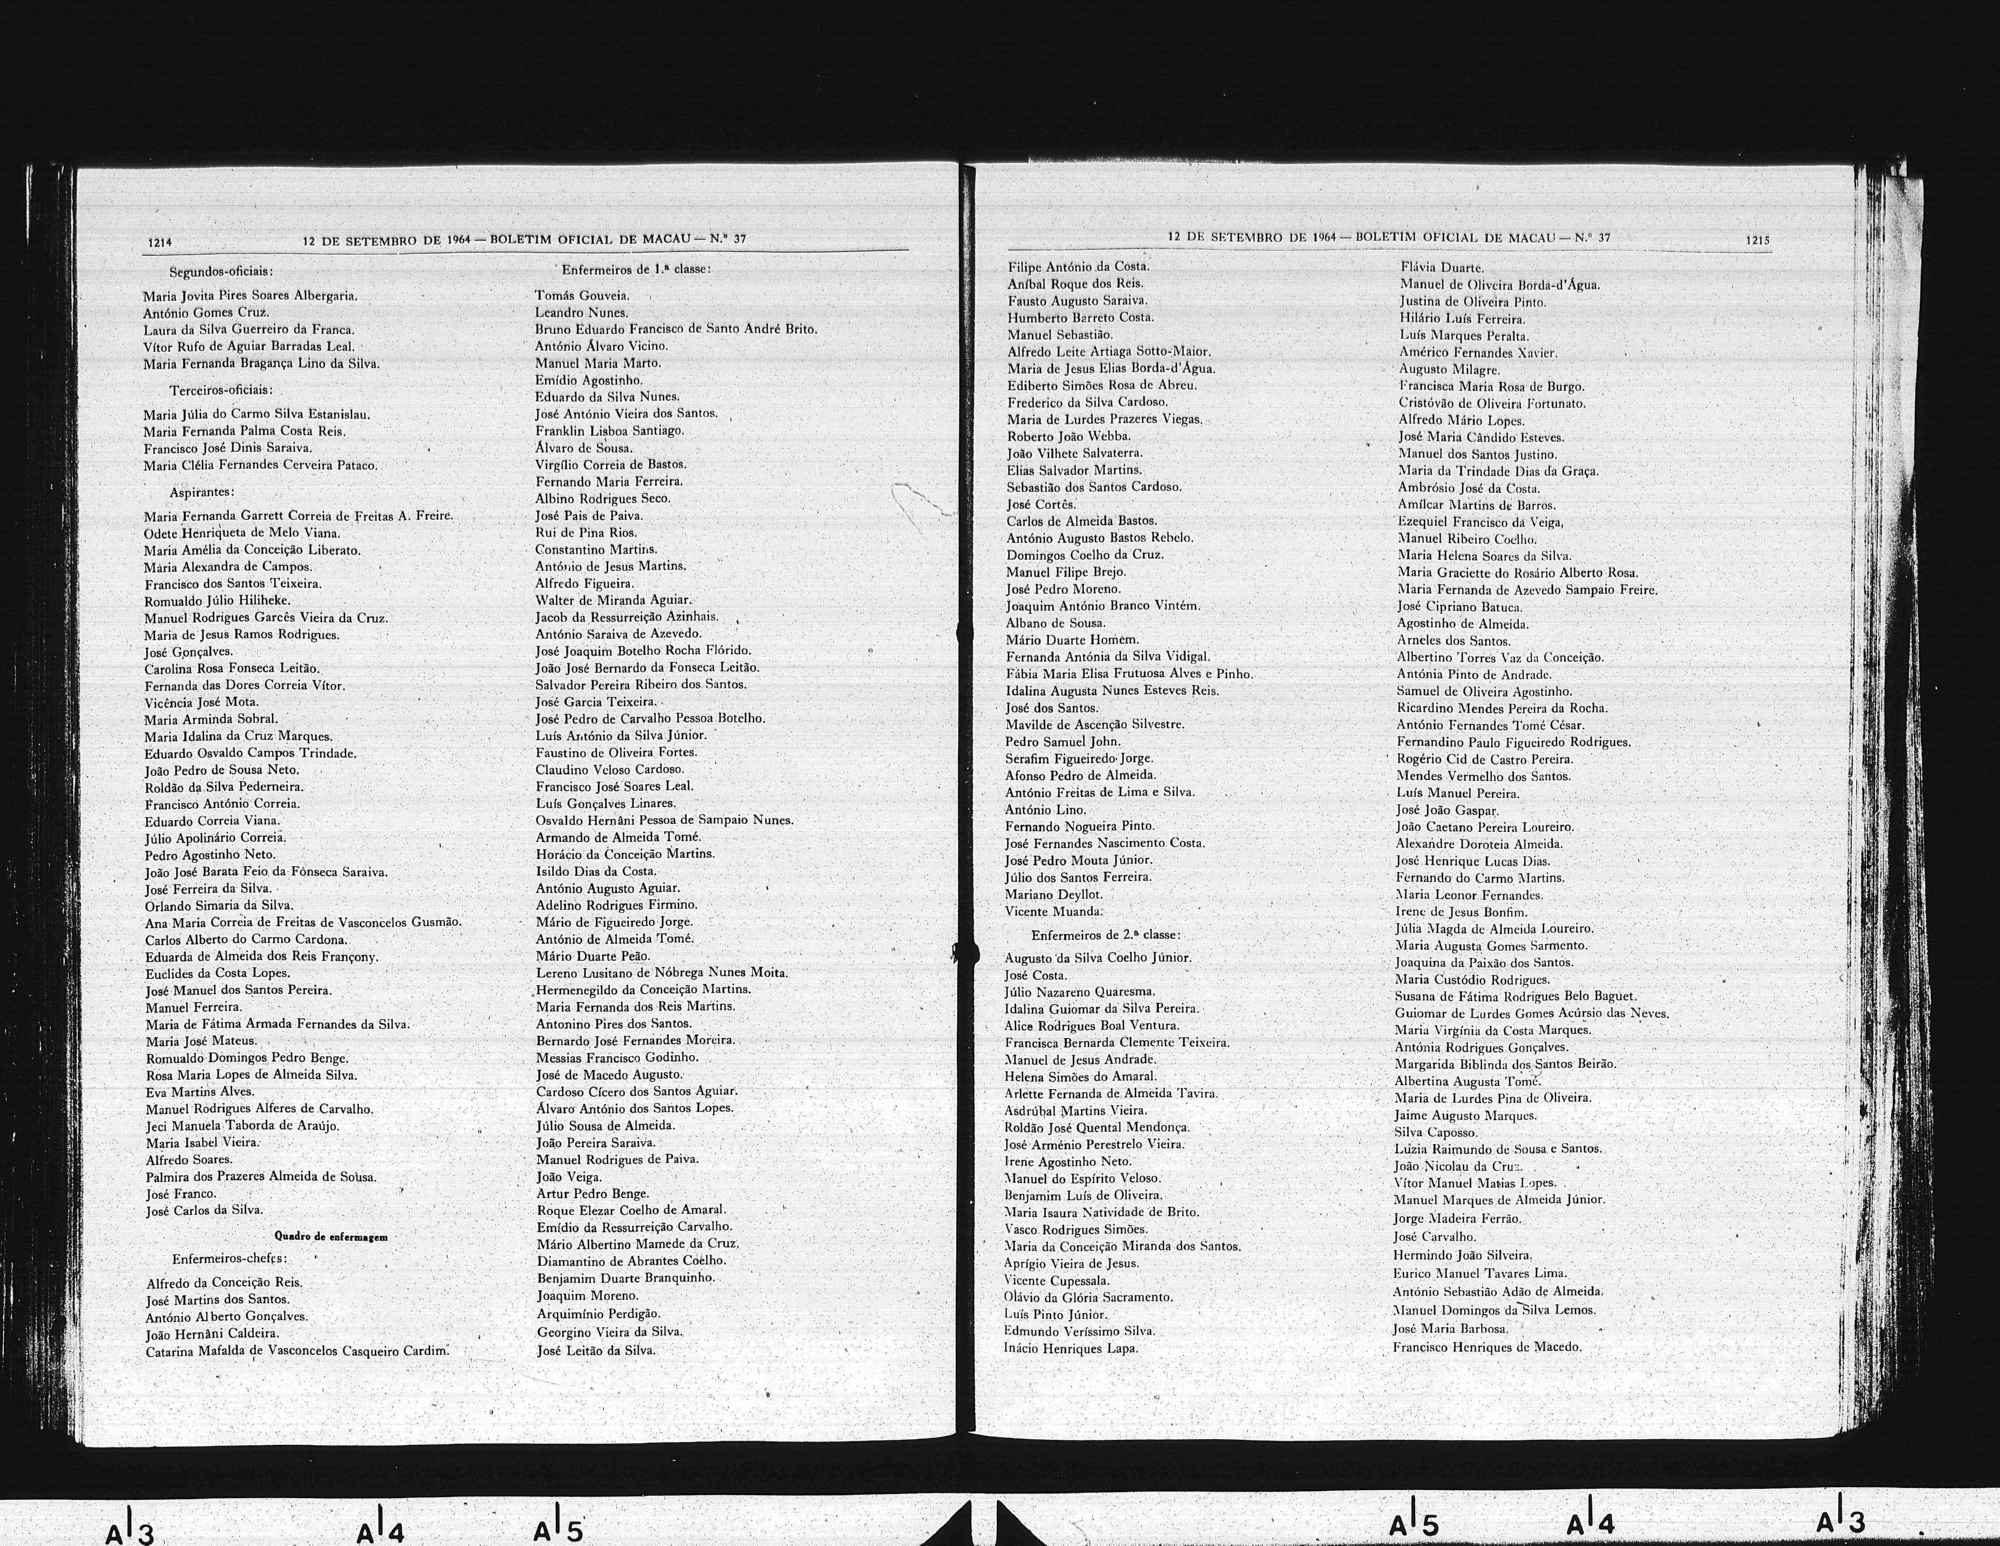 1214
12 DE SETEMBRO DE 1964 — BOLETIM OFICIAL DE MACAU — N.º 37
Segundos-oficiais:
Maria Jovita Pires Soares Albergaria.
António Gomes Cruz.
Laura da Silva Guerreiro da Franca.
Vítor Rufo de Aguiar Barradas Leal.
Maria Fernanda Bragança Lino da Silva.
Terceiros-oficiais:
Maria Júlia do Carmo Silva Estanislau.
Maria Fernanda Palma Costa Reis.
Francisco José Dinis Saraiva.
Maria Clélia Fernandes Cerveira Pataco.
Aspirantes:
Maria Fernanda Garrett Correia de Freitas A. Freire.
Odete Henriqueta de Melo Viana.
Maria Amélia da Conceição Liberato.
Maria Alexandra de Campos.
Francisco dos Santos Teixeira.
Romualdo Júlio Hiliheke.
Manuel Rodrigues Garcês Vieira da Cruz.
Maria de Jesus Ramos Rodrigues.
José Gonçalves.
Carolina Rosa Fonseca Leitão.
Fernanda das Dores Correia Vítor.
Vicência José Mota.
Maria Arminda Sobral.
Maria Idalina da Cruz Marques.
Eduardo Osvaldo Campos Trindade.
João Pedro de Sousa Neto.
Roldão da Silva Pederneira.
Francisco António Correia.
Eduardo Correia Viana.
Júlio Apolinário Correia.
Pedro Agostinho Neto.
João José Barata Feio da Fonseca Saraiva.
José Ferreira da Silva.
Orlando Simaria da Silva.
Ana Maria Correia de Freitas de Vasconcelos Gusmão.
Carlos Alberto do Carmo Cardona.
Eduarda de Almeida dos Reis Françony.
Euclides da Costa Lopes.
José Manuel dos Santos Pereira.
Manuel Ferreira.
Maria de Fátima Armada Fernandes da Silva.
Maria José Mateus.
Romualdo Domingos Pedro Benge.
Rosa Maria Lopes de Almeida Silva.
Eva Martins Alves.
Manuel Rodrigues Alferes de Carvalho.
Jeci Manuela Taborda de Araújo.
Maria Isabel Vieira.
Alfredo Soares.
Palmira dos Prazeres Almeida de Sousa.
José Franco.
José Carlos da Silva.
Quadro de enfermagem
Enfermeiros-chefes:
Alfredo da Conceição Reis.
José Martins dos Santos.
António Alberto Gonçalves.
João Hernâni Caldeira.
Catarina Mafalda de Vasconcelos Casqueiro Cardim.
Enfermeiros de 1.ª classe:
Tomás Gouveia.
Leandro Nunes.
Bruno Eduardo Francisco de Santo André Brito.
António Álvaro Vicino.
Manuel Maria Marto.
Emídio Agostinho.
Eduardo da Silva Nunes.
José António Vieira dos Santos.
Franklin Lisboa Santiago.
Álvaro de Sousa.
Virgílio Correia de Bastos.
Fernando Maria Ferreira.
Albino Rodrigues Seco.
José Pais de Paiva.
Rui de Pina Rios.
Constantino Martins.
António de Jesus Martins.
Alfredo Figueira.
Walter de Miranda Aguiar.
Jacob da Ressurreição Azinhais.
António Saraiva de Azevedo.
José Joaquim Botelho Rocha Flórido.
João José Bernardo da Fonseca Leitão.
Salvador Pereira Ribeiro dos Santos.
José Garcia Teixeira.
José Pedro de Carvalho Pessoa Botelho.
Luís António da Silva Júnior.
Faustino de Oliveira Fortes.
Claudino Veloso Cardoso.
Francisco José Soares Leal.
Luís Gonçalves Linares.
Osvaldo Hernâni Pessoa de Sampaio Nunes.
Armando de Almeida Tomé.
Horácio da Conceição Martins.
Isildo Dias da Costa.
António Augusto Aguiar.
Adelino Rodrigues Firmino.
Mário de Figueiredo Jorge.
António de Almeida Tomé.
Mário Duarte Peão.
Lereno Lusitano de Nóbrega Nunes Moita.
Hermenegildo da Conceição Martins.
Maria Fernanda dos Reis Martins.
Antonino Pires dos Santos.
Bernardo José Fernandes Moreira.
Messias Francisco Godinho.
José de Macedo Augusto.
Cardoso Cícero dos Santos Aguiar.
Álvaro António dos Santos Lopes.
Júlio Sousa de Almeida.
João Pereira Saraiva.
Manuel Rodrigues de Paiva.
João Veiga.
Artur Pedro Benge.
Roque Elezar Coelho de Amaral.
Emídio da Ressurreição Carvalho.
Mário Albertino Mamede da Cruz.
Diamantino de Abrantes Coelho.
Benjamim Duarte Branquinho.
Joaquim Moreno.
Arquimínio Perdigão.
Georgino Vieira da Silva.
José Leitão da Silva.
12 DE SETEMBRO DE 1964 — BOLETIM OFICIAL DE MACAU — N.º 37
1215
Filipe António da Costa.
Aníbal Roque dos Reis.
Fausto Augusto Saraiva.
Humberto Barreto Costa.
Manuel Sebastião.
Alfredo Leite Artiaga Sotto-Maior.
Maria de Jesus Elias Borda-d'Água.
Ediberto Simões Rosa de Abreu.
Frederico da Silva Cardoso.
Maria de Lurdes Prazeres Viegas.
Roberto João Webba.
João Vilhete Salvaterra.
Elias Salvador Martins.
Sebastião dos Santos Cardoso.
José Cortês.
Carlos de Almeida Bastos.
António Augusto Bastos Rebelo.
Domingos Coelho da Cruz.
Manuel Filipe Brejo.
José Pedro Moreno.
Joaquim António Branco Vintém.
Albano de Sousa.
Mário Duarte Homem.
Fernanda Antónia da Silva Vidigal.
Fábia Maria Elisa Frutuosa Alves e Pinho.
Idalina Augusta Nunes Esteves Reis.
José dos Santos.
Mavilde de Ascenção Silvestre.
Pedro Samuel John.
Serafim Figueiredo Jorge.
Afonso Pedro de Almeida.
António Freitas de Lima e Silva.
António Lino.
Fernando Nogueira Pinto.
José Fernandes Nascimento Costa.
José Pedro Mouta Júnior.
Júlio dos Santos Ferreira.
Mariano Deyllot.
Vicente Muanda.
Enfermeiros de 2.ª classe:
Augusto da Silva Coelho Júnior.
José Costa.
Júlio Nazareno Quaresma.
Idalina Guiomar da Silva Pereira.
Alice Rodrigues Boal Ventura.
Francisca Bernarda Clemente Teixeira.
Manuel de Jesus Andrade.
Helena Simões do Amaral.
Arlette Fernanda de Almeida Tavira.
Asdrúbal Martins Vieira.
Roldão José Quental Mendonça.
José Arménio Perestrelo Vieira.
Irene Agostinho Neto.
Manuel do Espírito Veloso.
Benjamim Luís de Oliveira.
Maria Isaura Natividade de Brito.
Vasco Rodrigues Simões.
Maria da Conceição Miranda dos Santos.
Aprígio Vieira de Jesus.
Vicente Cupessala.
Olávio da Glória Sacramento.
Luís Pinto Júnior.
Edmundo Veríssimo Silva.
Inácio Henriques Lapa.
Flávia Duarte.
Manuel de Oliveira Borda-d'Água.
Justina de Oliveira Pinto.
Hilário Luís Ferreira.
Luís Marques Peralta.
Américo Fernandes Xavier.
Augusto Milagre.
Francisca Maria Rosa de Burgo.
Cristóvão de Oliveira Fortunato.
Alfredo Mário Lopes.
José Maria Cândido Esteves.
Manuel dos Santos Justino.
Maria da Trindade Dias da Graça.
Ambrósio José da Costa.
Amílcar Martins de Barros.
Ezequiel Francisco da Veiga,
Manuel Ribeiro Coelho.
Maria Helena Soares da Silva.
Maria Graciette do Rosário Alberto Rosa.
Maria Fernanda de Azevedo Sampaio Freire.
José Cipriano Batuca.
Agostinho de Almeida.
Arneles dos Santos.
Albertino Torres Vaz da Conceição.
Antónia Pinto de Andrade.
Samuel de Oliveira Agostinho.
Ricardino Mendes Pereira da Rocha.
António Fernandes Tomé César.
Fernandino Paulo Figueiredo Rodrigues.
Rogério Cid de Castro Pereira.
Mendes Vermelho dos Santos.
Luís Manuel Pereira.
José João Gaspar.
João Caetano Pereira Loureiro.
Alexandre Doroteia Almeida.
José Henrique Lucas Dias.
Fernando do Carmo Martins.
Maria Leonor Fernandes.
Irene de Jesus Bonfim.
Júlia Magda de Almeida Loureiro.
Maria Augusta Gomes Sarmento.
Joaquina da Paixão dos Santos.
Maria Custódio Rodrigues.
Susana de Fátima Rodrigues Belo Baguet.
Guiomar de Lurdes Gomes Acúrsio das Neves.
Maria Virgínia da Costa Marques.
Antónia Rodrigues Gonçalves.
Margarida Biblinda dos Santos Beirão.
Albertina Augusta Tomé.
Maria de Lurdes Pina de Oliveira.
Jaime Augusto Marques.
Silva Caposso.
Luzia Raimundo de Sousa e Santos.
João Nicolau da Cruz.
Vítor Manuel Matias Lopes.
Manuel Marques de Almeida Júnior.
Jorge Madeira Ferrão.
José Carvalho.
Hermindo João Silveira.
Eurico Manuel Tavares Lima.
António Sebastião Adão de Almeida.
Manuel Domingos da Silva Lemos.
José Maria Barbosa.
Francisco Henriques de Macedo.
A3 A4 A5 A5 A4 A3